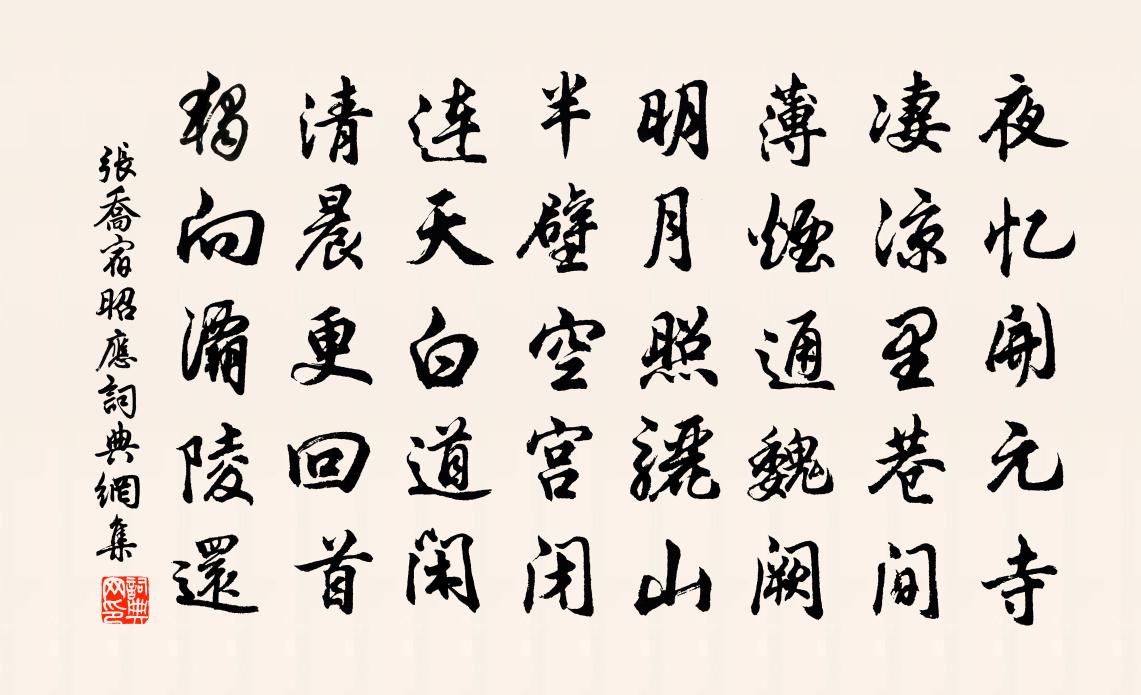 夜忆開元寺
凄涼里巷間
薄煙通魏阙
明月照驪山
半壁空宫闭
连天白道闲
清晨更回首
獨向灞陵還
張喬宿昭應詞典網集
詞典网印